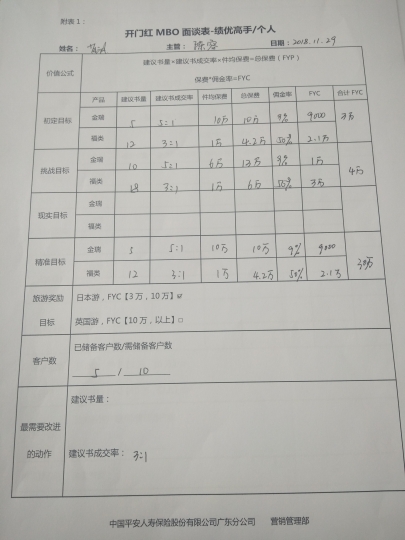 附表 1：
开门红 MBO 面谈表-绩优高手/个人
姓名： 主管： 日期：2018.11.29
价值公式 建议书量×建议书成交率×件均保费=总保费（FYP）
保费*佣金率=FYC
产品 建议书量 建议书成交率 件均保费 总保费 佣金率 FYC 合计 FYC
初定目标 金瑞 5 5:1 10万 10万 9% 9000 3万
福类 12 3:1 1万 4.2万 50% 2.1万
挑战目标 金瑞 10 5:1 6万 9% 1万 4万
福类 18 3:1 1万 6万 50% 3万
现实目标 金瑞
福类
精准目标 金瑞 5 5:1 10万 10万 9% 9000 30万
福类 12 3:1 1万 4.2万 50% 2.1万
旅游奖励 日本游，FYC【3 万，10 万】☑
目标 英国游，FYC【10 万，以上】□
客户数 已储备客户数/需储备客户数
5 / 10
建议书量：
最需要改进
的动作 建议书成交率： 3:1
中国平安人寿保险股份有限公司广东分公司 营销管理部